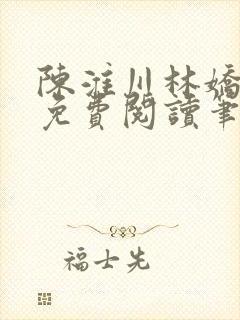 陳淮川林嬌
免費閱讀筆
福士先